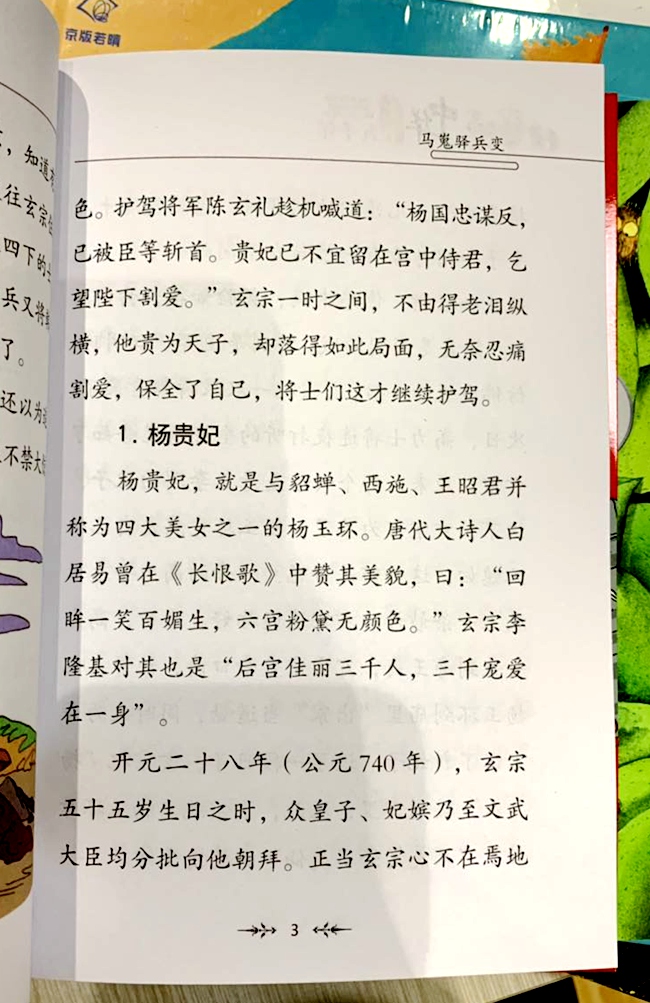 京版若晴
，知道
往玄宗
四下的士
兵又将
了。
还以为
不禁大
马嵬驿兵变
色。护驾将军陈玄礼趁机喊道：“杨国忠谋反，
已被臣等斩首。贵妃已不宜留在宫中侍君，乞
望陛下割爱。”玄宗一时之间，不由得老泪纵
横，他贵为天子，却落得如此局面，无奈忍痛
割爱，保全了自己，将士们这才继续护驾。
1. 杨贵妃
杨贵妃，就是与貂蝉、西施、王昭君并
称为四大美女之一的杨玉环。唐代大诗人白
居易曾在《长恨歌》中赞其美貌，曰：“回
眸一笑百媚生，六宫粉黛无颜色。”玄宗李
隆基对其也是“后宫佳丽三千人，三千宠爱
在一身”。
开元二十八年（公元740年），玄宗
五十五岁生日之时，众皇子、妃嫔乃至文武
大臣均分批向他朝拜。正当玄宗心不在焉地
3